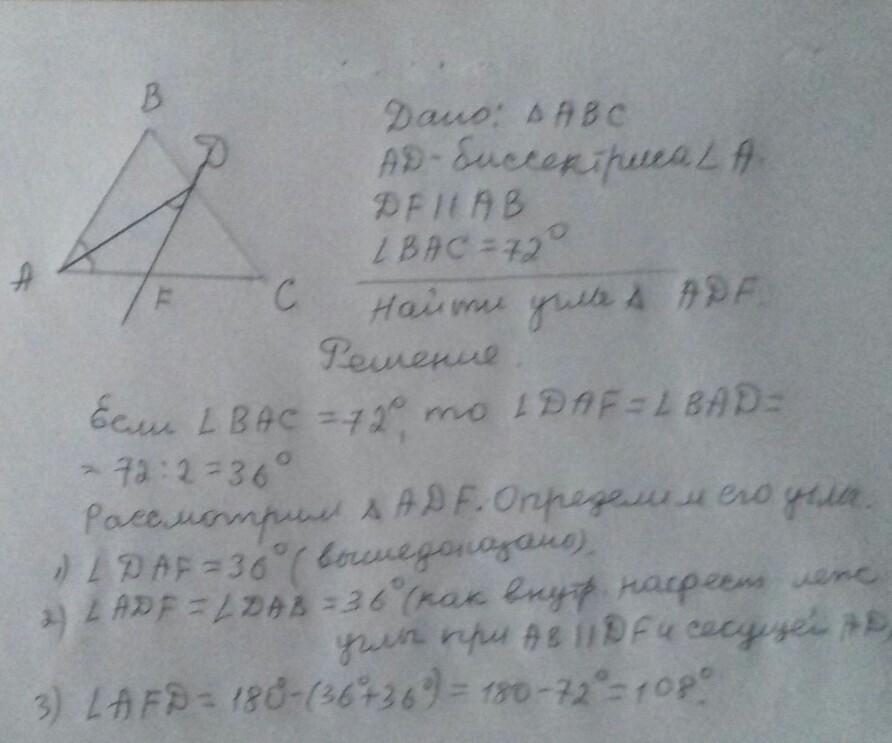 B
D
A
F
C
Дано: △ ABC
AD - биссектриса ∠ A.
DF || AB
∠ BAC = 72°
Найти углы △ ADF.
Решение.
Если ∠ BAC = 72°, то ∠ DAF = ∠ BAD =
= 72 : 2 = 36°
Рассмотрим △ ADF. Определим его углы.
1) ∠ DAF = 36° (вышедоказано).
2) ∠ ADF = ∠ DAB = 36° (как внутр. накрест леж.
углы при AB || DF и секущей AD
3) ∠ AFD = 180° - (36° + 36°) = 180 - 72° = 108°.